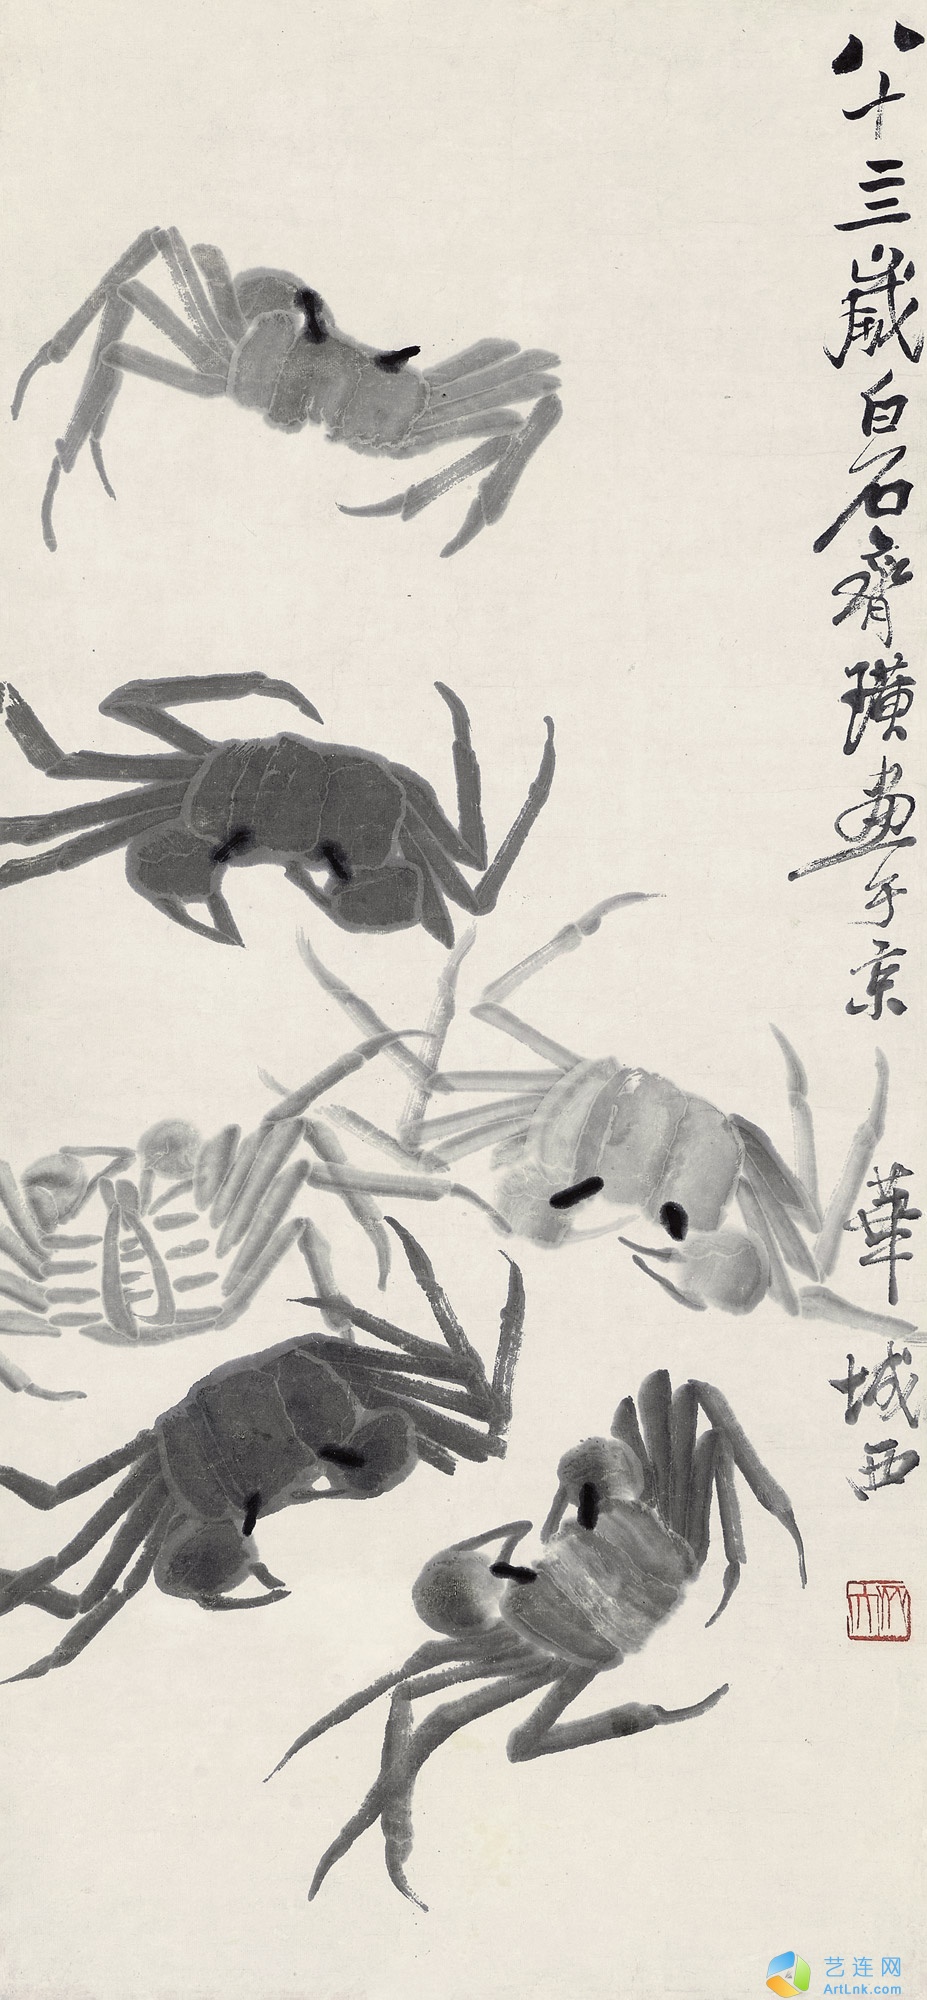 八十三歲白石齊璜畫于京華城西
艺连网
ArtLnk.com